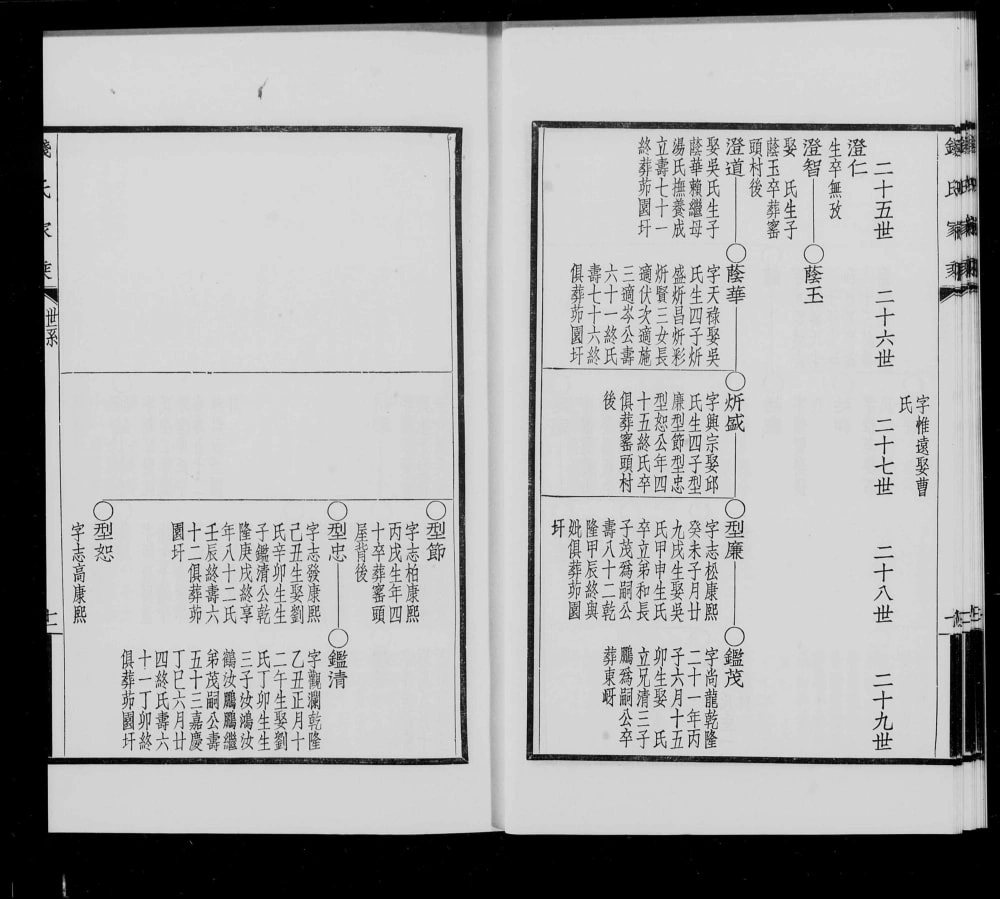 字惟遠娶曹
氏
二十五世
二十六世
二十七世
二十八世
二十九世
澄仁
生卒無攷
澄智
娶　氏生子
蔭玉卒葬窰
頭村後
蔭玉
澄道
娶吳氏生子
蔭華賴繼母
湯氏撫養成
立壽七十一
終葬茆園圩
蔭華
字天祿娶吳
氏生四子炘
盛炘昌炘彩
炘賢三女長
適伏次適施
三適岑公壽
六十一終氏
壽七十六終
俱葬茆園圩
炘盛
字興宗娶邱
氏生四子型
廉型節型忠
型恕公年四
十五終氏卒
俱葬窰頭村
後
型廉
字志松康熙
癸未子月廿
九戌生娶吳
氏甲申生氏
卒立弟和長
子茂爲嗣公
壽八十二乾
隆甲辰終與
妣俱葬茆園
圩
鑑茂
字尚龍乾隆
二十一年丙
子六月十五
卯生娶　氏
立兄清三子
鵬爲嗣公卒
葬東岈
型節
字志柏康熙
丙戌生年四
十卒葬窰頭
屋背後
型忠
字志發康熙
己丑生娶劉
氏辛卯生生
子鑑清公乾
隆庚戌終享
年八十二氏
壬辰終壽六
十二俱葬茆
園圩
鑑清
字觀瀾乾隆
乙丑正月十
二午生娶劉
氏丁卯生生
三子汝鴻汝
鶴汝鵬鵬繼
弟茂嗣公壽
五十三嘉慶
丁巳六月廿
四終氏壽六
十一丁卯終
俱葬茆園圩
型恕
字志高康熙
氏家乘
世系